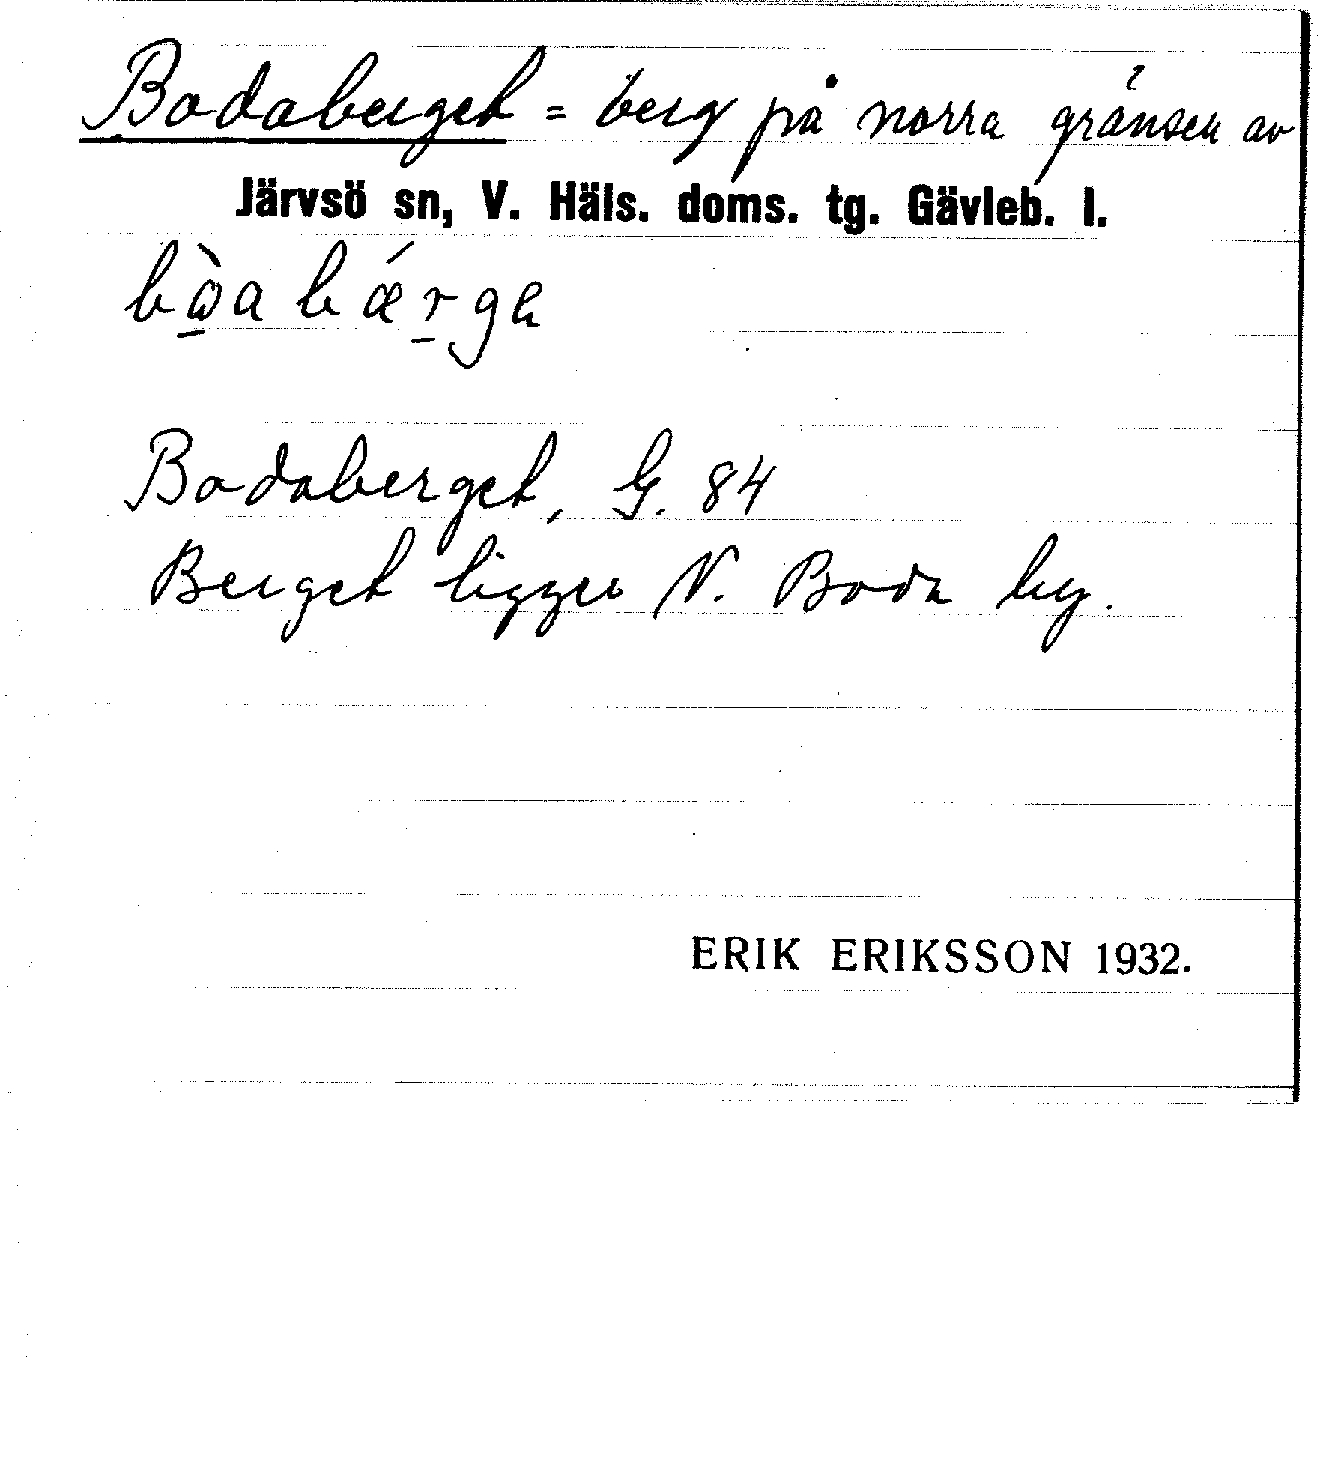 Bodaberget = berg på norra gränsen av
Järvsö sn, V. Häls. doms. tg. Gävleb. l.
bὼ̱a bǽṟga
Bodaberget, G. 84
Berget ligger N. Boda by.
ERIK ERIKSSON 1932.